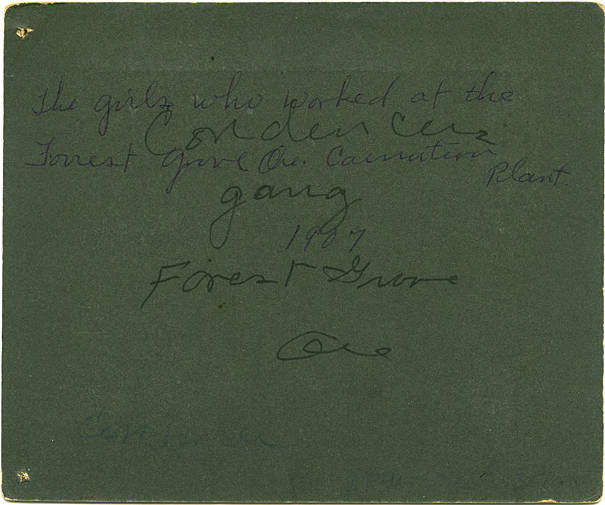 The girls who worked at the
Condencers
Forrest Grove Ore. Carnation
Plant.
gang
1907
Forest Grove
Ore